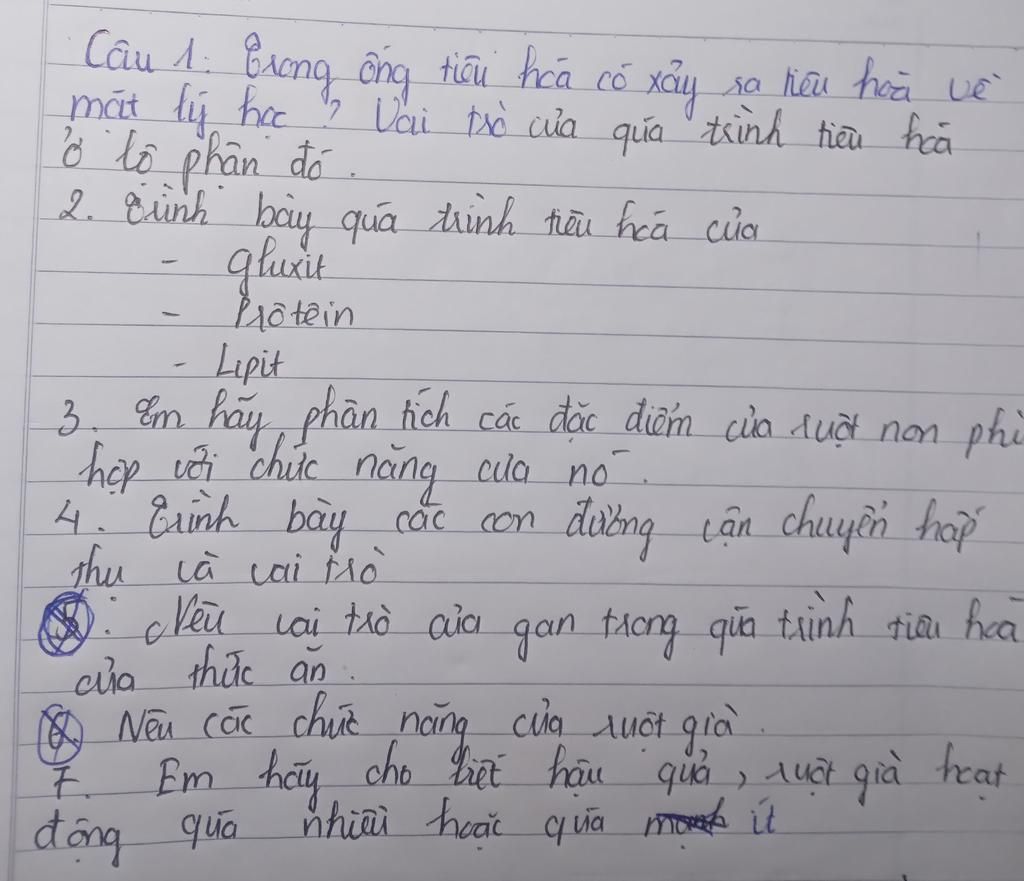 Câu 1. Trong ống tiêu hoá có xảy ra tiêu hoá về
mặt lý học? Vai trò của quá trình tiêu hoá
ở bộ phận đó.
2. Trình bày quá trình tiêu hoá của
- Gluxit
- Prôtêin
- Lipit
3. Em hãy phân tích các đặc điểm của ruột non phù
hợp với chức năng của nó.
4. Trình bày các con đường vận chuyển hấp
thụ và vai trò
5. Nêu vai trò của gan trong quá trình tiêu hoá
của thức ăn.
6. Nêu các chức năng của ruột già.
7. Em hãy cho biết hậu quả, ruột già hoạt
động quá nhiều hoặc quá ít